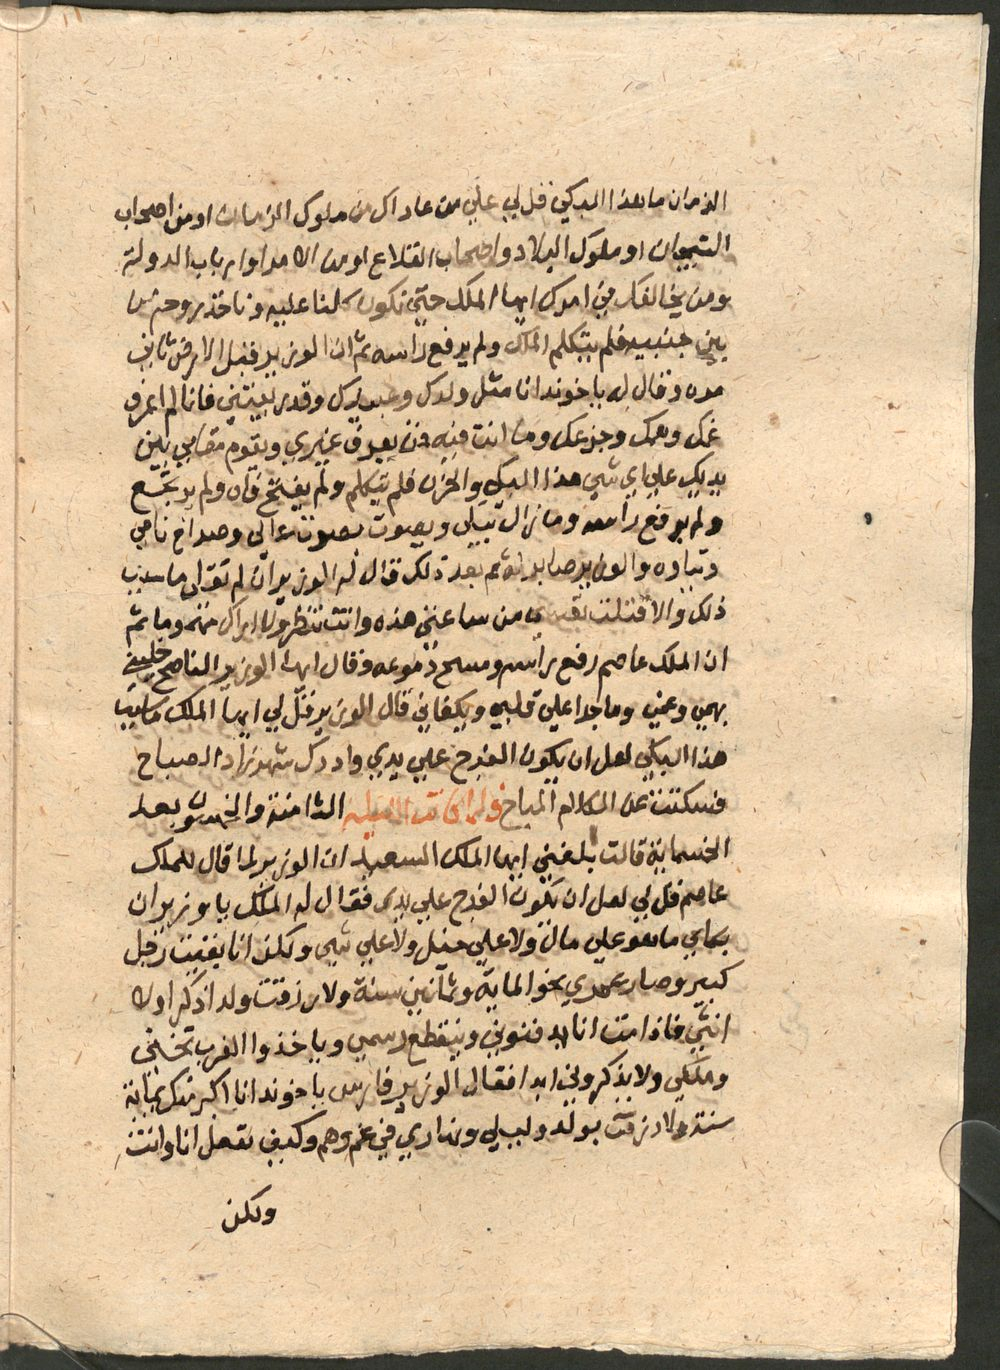 الزمان ما هذا البكي قل لي علي من عاداك من ملوك الزمان او من اصحاب
التيجان او ملوك البلاد واصحاب القلاع او من الامرا وارباب الدولة
ومن يخالفك في امرك ايها الملك حتي نكون كلنا عليه وناخذ روحه من
بين جنبيه فلم يتكلم الملك ولم يرفع راسه ثم ان الوزير قبل الارض ثاني
مره وقال له يا خوند انا مثل ولدك وعبدك وقد ربيتني فانا لم اعرف
غمك وهمك وجزعك وما انت فيه فمن يعرف غيري ويقوم مقامي بين
يديك علي اي شي هذا البكي والحزن فلم يتكلم ولم يفتح فاه ولم يرتجع
ولم يرفع راسه وما زال يبكي ويصوت بصوت عالي وصراخ نامي
وتباوه والوزير صابر له ثم بعد ذلك قال له الوزير ان لم تقول ما سبب
ذلك والا قتلت نفسي من ساعتي هذه وانت تنظر ولا اراك مهموما ثم
ان الملك عاصم رفع راسه ومسح دموعه وقال ايها الوزير الناصح خليني
بهمي وغمي وما جرا علي قلبي ويكفاني قال الوزير قل لي ايها الملك ما سبب
هذا البكي لعل ان يكون الفرج علي يدي وادرك شهرزاد الصباح
فسكتت عن الكلام المباح فلما كانت الليله الثامنة والخمسون بعد
الخسماية قالت بلغني ايها الملك السعيد ان الوزير لما قال للملك
عاصم قل لي لعل ان يكون الفرج علي يدي فقال له الملك يا وزير ان
بكايي ما هو علي مال ولا علي خيل ولا علي شي ولكن انا بقيت رجل
كبير وصار عمري نحو الماية وثمانين سنة ولا رزقت ولد اذكر اولا
انثي فاذا مت انا يدفنوني وينقطع رسمي وياخذوا الغرب تختي
وملكي ولا يذكروني ابدا فقال الوزير فارس يا خوند انا اكبر منك بماية
سنة ولا رزقت بولد وليلي ونهاري في غم وهم وكيف نفعل انا وانت
ولكن